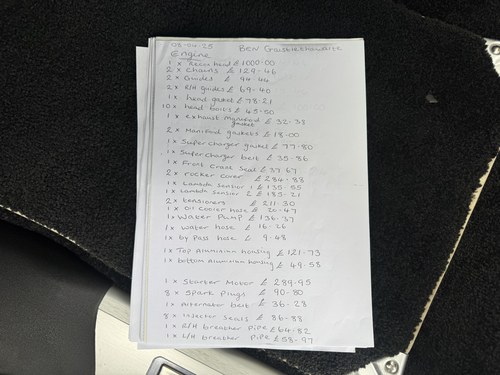 03-04-25
Engine
1 x Recon head £1000.00
2 x Chains £ 129-46
2 x Guides £ 94-44
2 x R/H guides £ 69-40
1 x head gasket £ 78-21
10 x head bolts £ 45-50
1 x exhaust manifold gasket £ 32-38
2 x Manifold gaskets £ 18-00
1 x Supercharger gasket £ 77-80
1 x Supercharger belt £ 35-86
1 x Front Crank Seal £ 37-67
2 x rocker cover £ 284-83
1 x Lambda Sensor 1 £ 155-55
1 x Lambda sensor 2 £ 183-21
2 x tensioners £ 211-30
1 x Oil Cooler hose £ 20-47
1 x Water Pump £ 136-37
1 x Water hose £ 16-26
1 x by Pass hose £ 9-48
1x Top Aluminium housing £121-73
1 x bottom Aluminium housing £ 49-58
1 x Starter Motor £ 289-95
8 x Spark Plugs £ 90-80
1 x Alternator belt £ 36-28
8 x Injector Seals £ 86-88
1 x R/H breather Pipe £64-82
1 x L/H breather Pipe £58-97